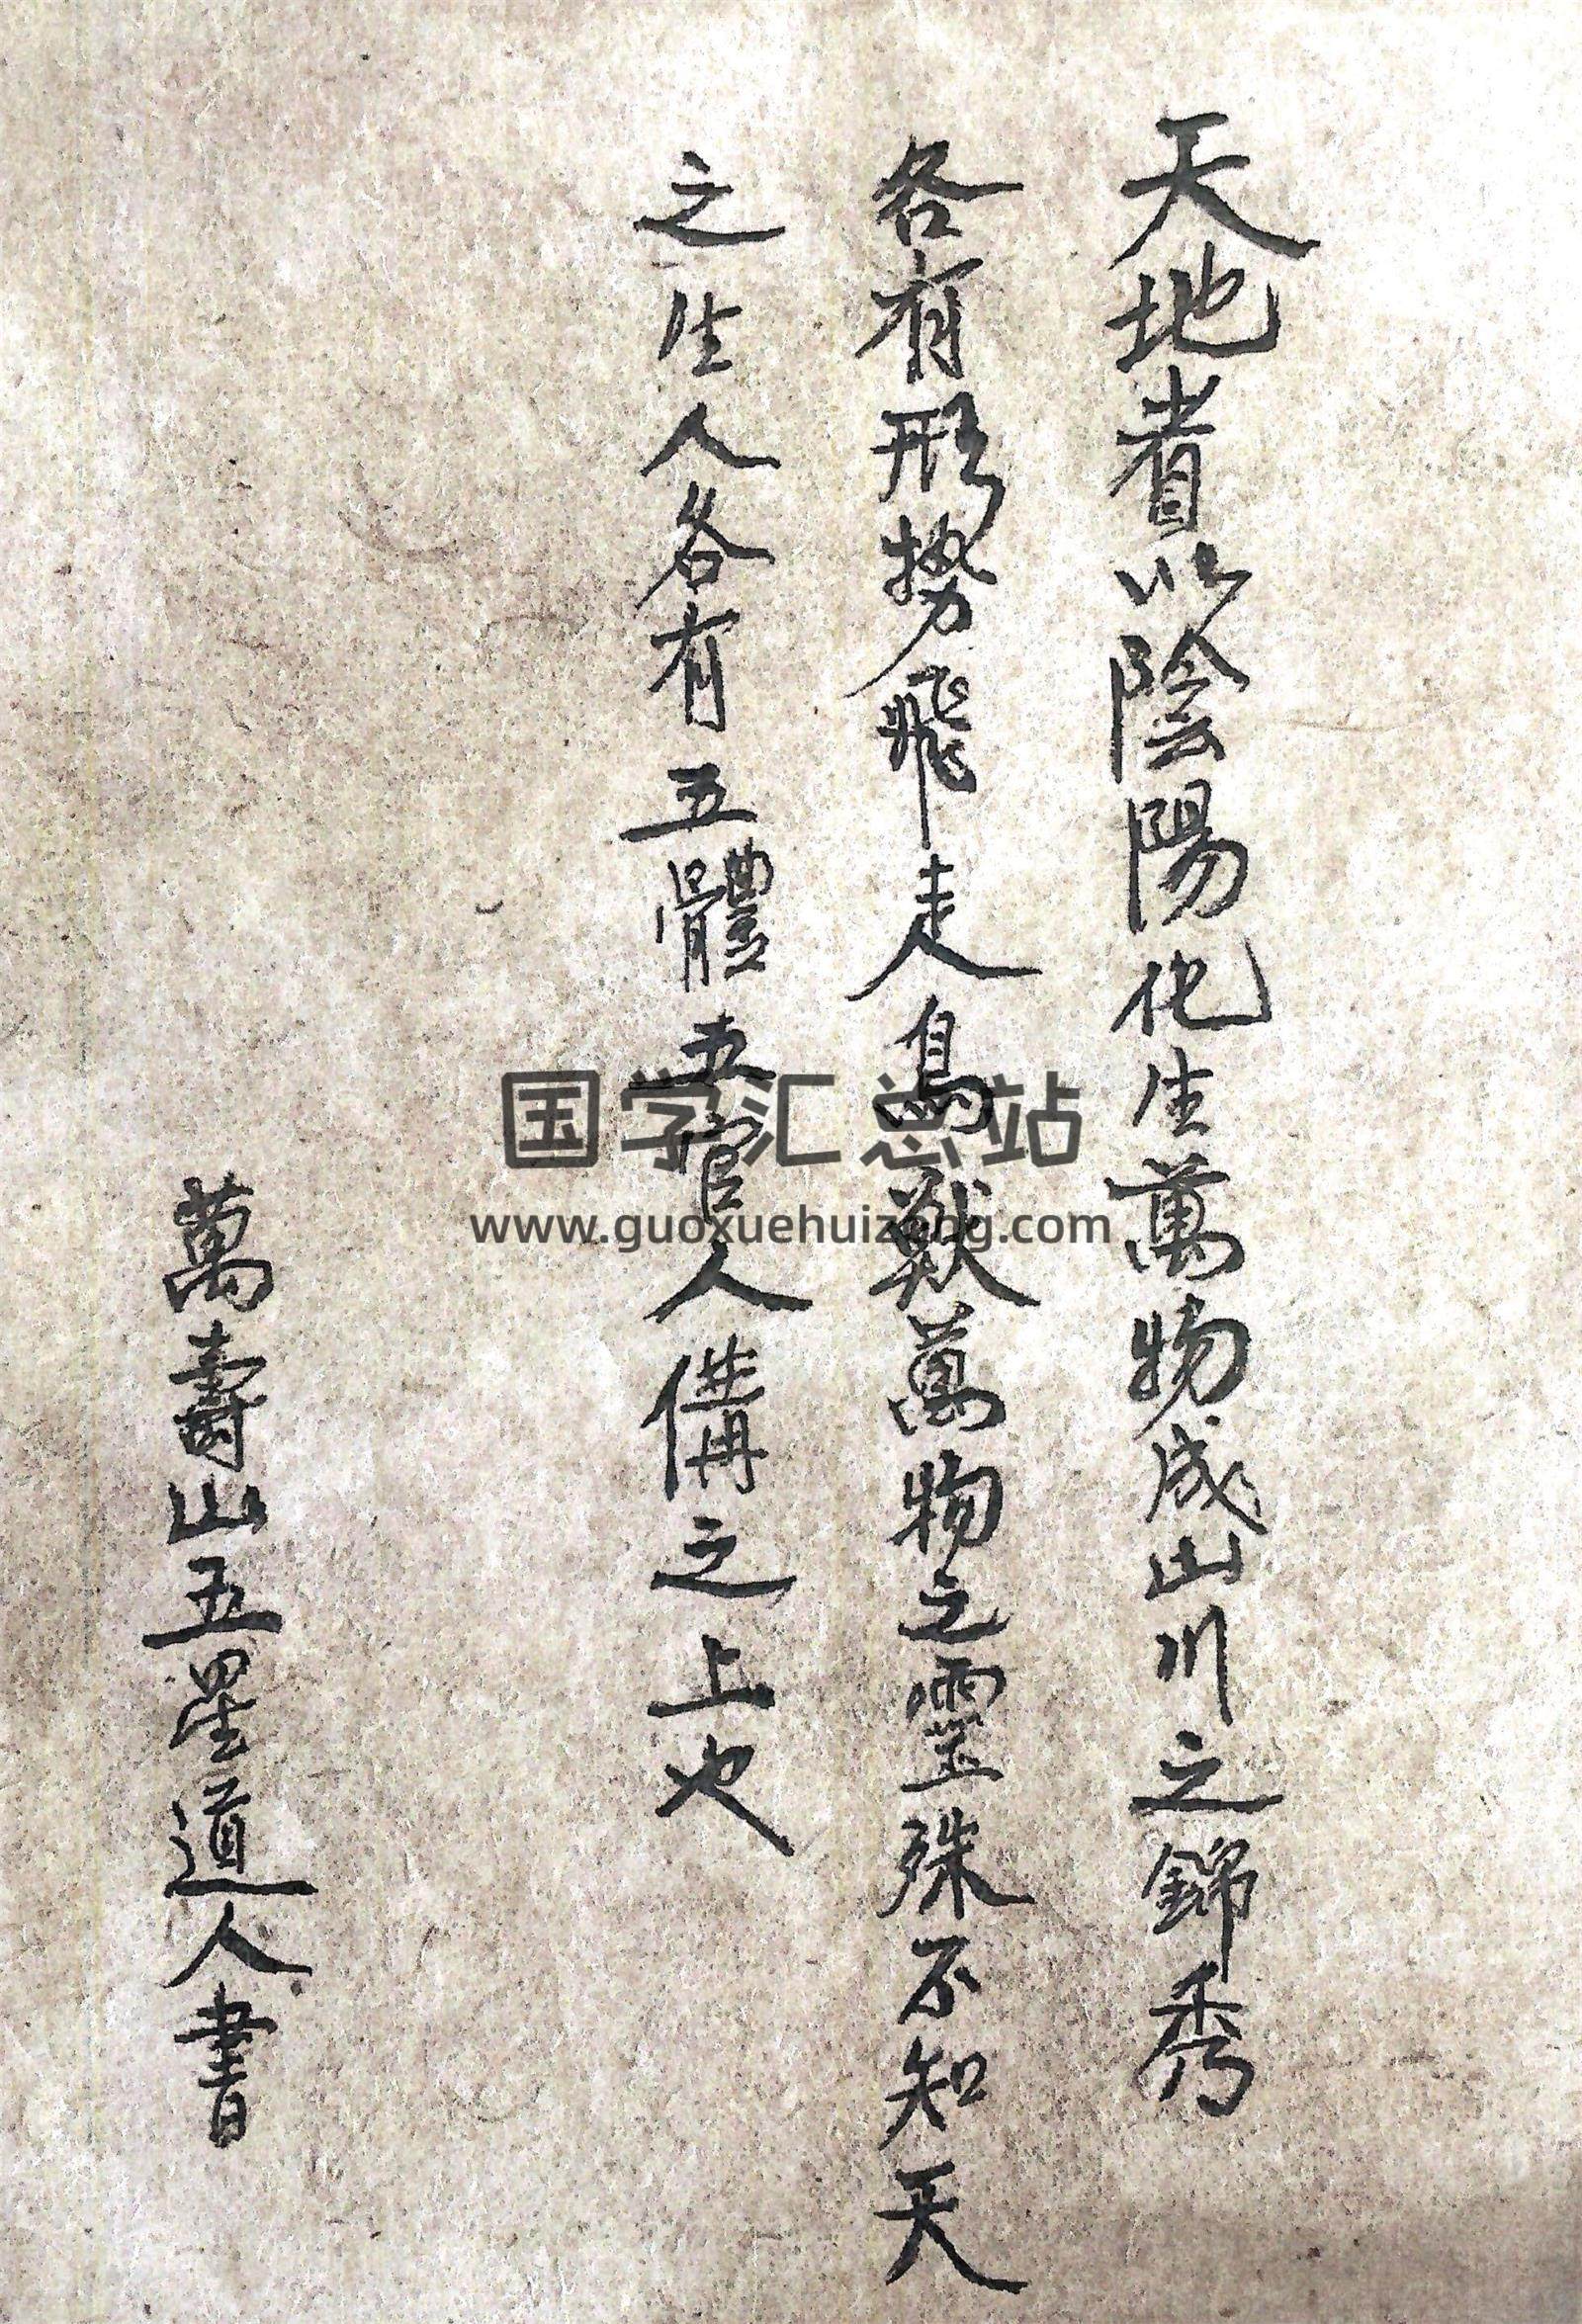 天地者以陰陽化生萬物成山川之錦秀
各有形勢飛走鳥獸萬物之靈殊不知天
之生人各有五體五官人備之上也
萬壽山五星道人書
国学汇总站
www.guoxuehuizong.com